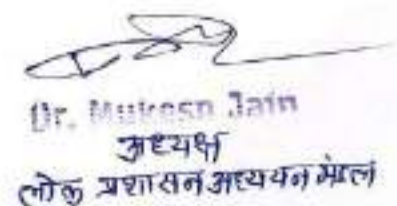 Dr. Mukesh Jain
अध्यक्ष
लोक प्रशासन अध्ययन मंडल